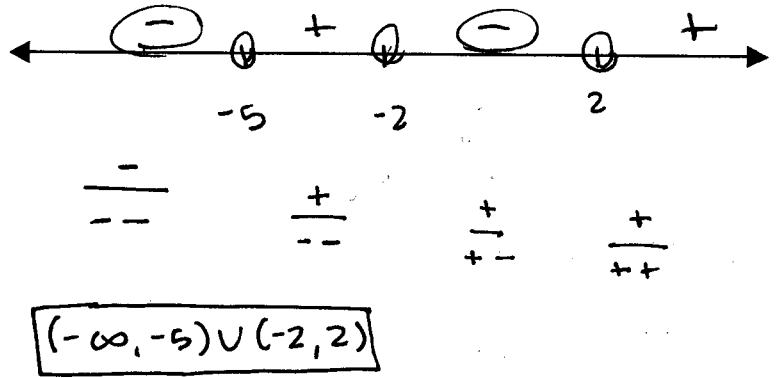 - + - +
-5 -2 2
- + + +
-- -- +- ++
(-∞,-5)∪(-2,2)